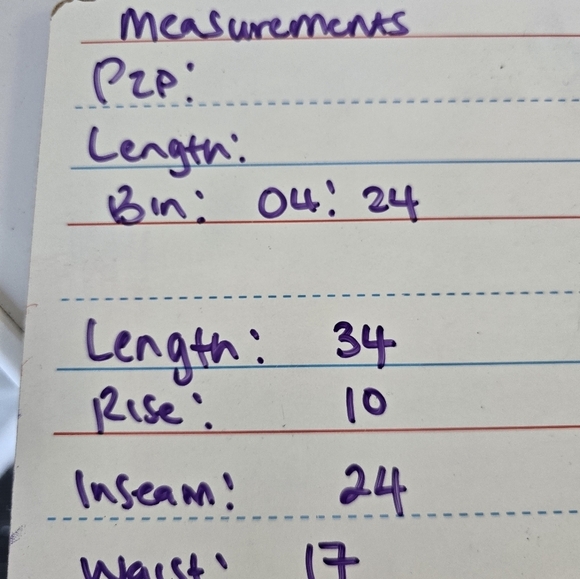 Measurements
P2P:
Length:
Bin: 04: 24
Length: 34
Rise: 10
Inseam: 24
Waist: 17